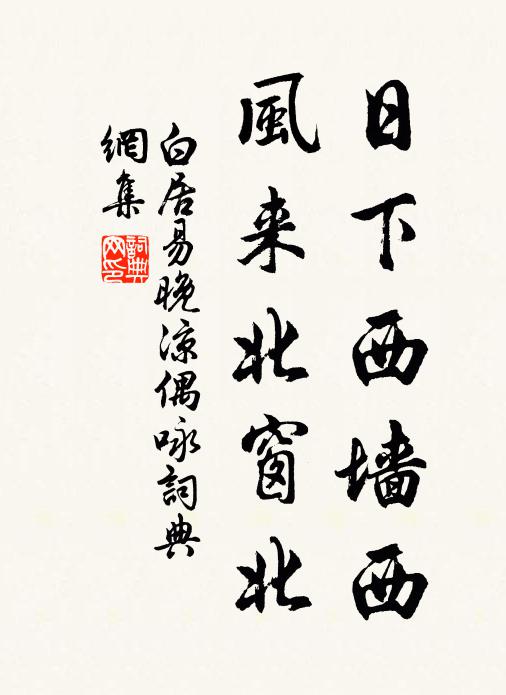 日下西墙西
風来北窗北
白居易晚凉偶咏詞典
網集
詞典网印